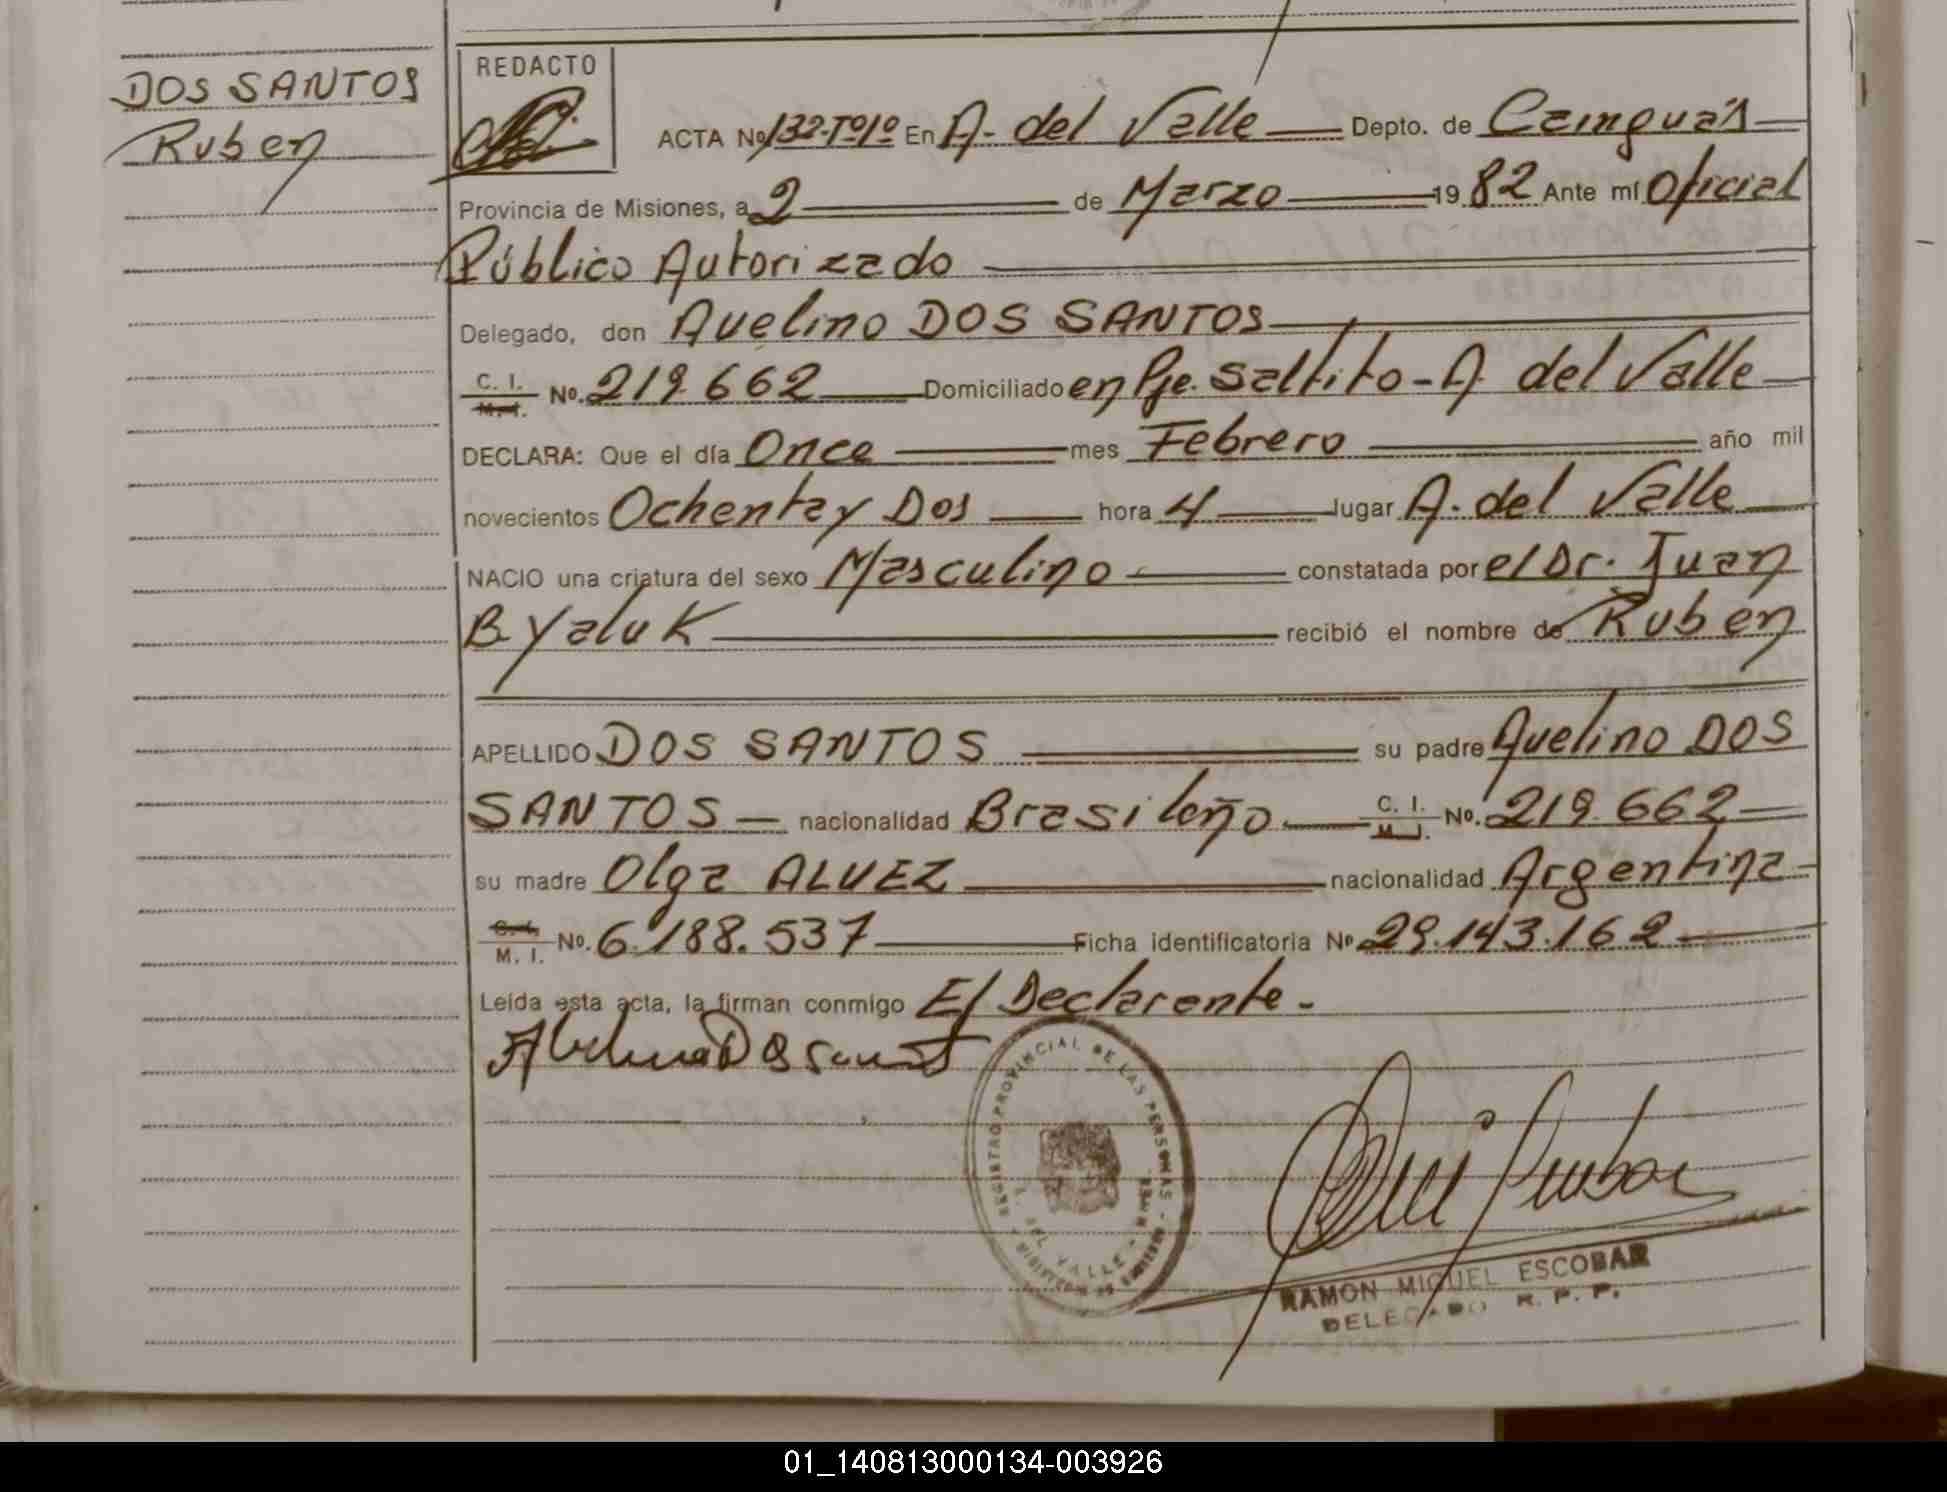 DOS SANTOS
Ruben
REDACTO
ACTA Nº 132-Tº1º En A. del Valle Depto. de Cainguás
Provincia de Misiones, a 2 de Marzo 1982 Ante mí Oficial
Público Autorizado
Delegado, don Avelino DOS SANTOS
C. I. M. I. No. 219.662 Domiciliado en Pje. Saltito - A. del Valle
DECLARA: Que el día Once mes Febrero año mil
novecientos Ochenta y Dos hora 4 lugar A. del Valle
NACIO una criatura del sexo Masculino constatada por el Dr. Juan
B. Yaluk recibió el nombre de Ruben
APELLIDO DOS SANTOS su padre Avelino DOS
SANTOS nacionalidad Brasileño C. I. M. I. No. 219.662
su madre Olga ALVEZ nacionalidad Argentina
C. I. M. I. No. 6.188.537 Ficha identificatoria Nº 29.143.162
Leída esta acta, la firman conmigo El Declarante.
REGISTRO PROVINCIAL DE LAS PERSONAS
A. DEL VALLE
RAMON MIGUEL ESCOBAR
DELEGADO R. P. P.
01_140813000134-003926